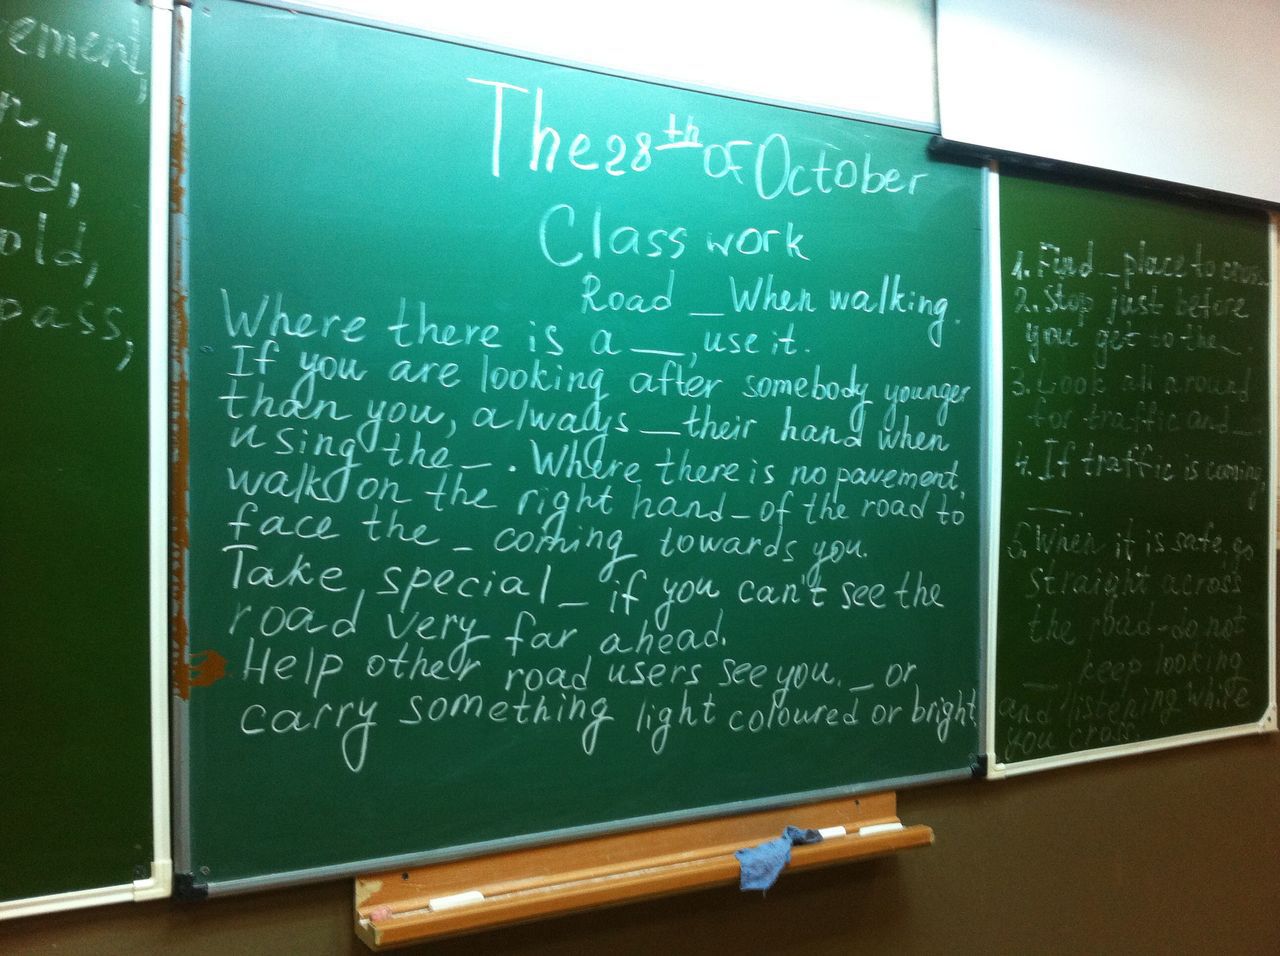 ement,
old,
pass,
The 28th of October
Class work
Road _ When walking.
Where there is a __, use it.
If you are looking after somebody younger
than you, always _ their hand when
using the _. Where there is no pavement,
walk on the right hand _ of the road to
face the _ coming towards you.
Take special _ if you can't see the
road very far ahead.
Help other road users see you. _ or
carry something light coloured or bright
1. Find _ place to cross
2. Stop just before
you get to the _.
3. Look all around
for traffic and _.
4. If traffic is coming,
__.
5. When it is safe, go
straight across
the road - do not
_ keep looking
and listening while
you cross.